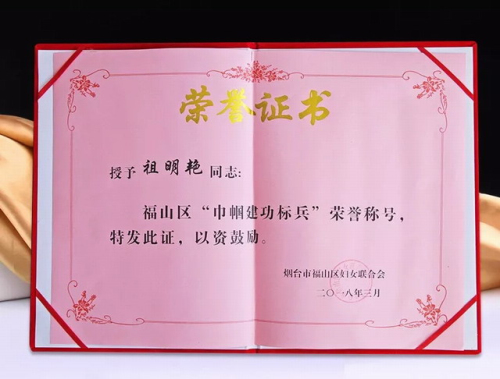 荣誉证书
授予 祖明艳 同志：
福山区“巾帼建功标兵”荣誉称号，
特发此证，以资鼓励。
烟台市福山区妇女联合会
二〇一八年三月